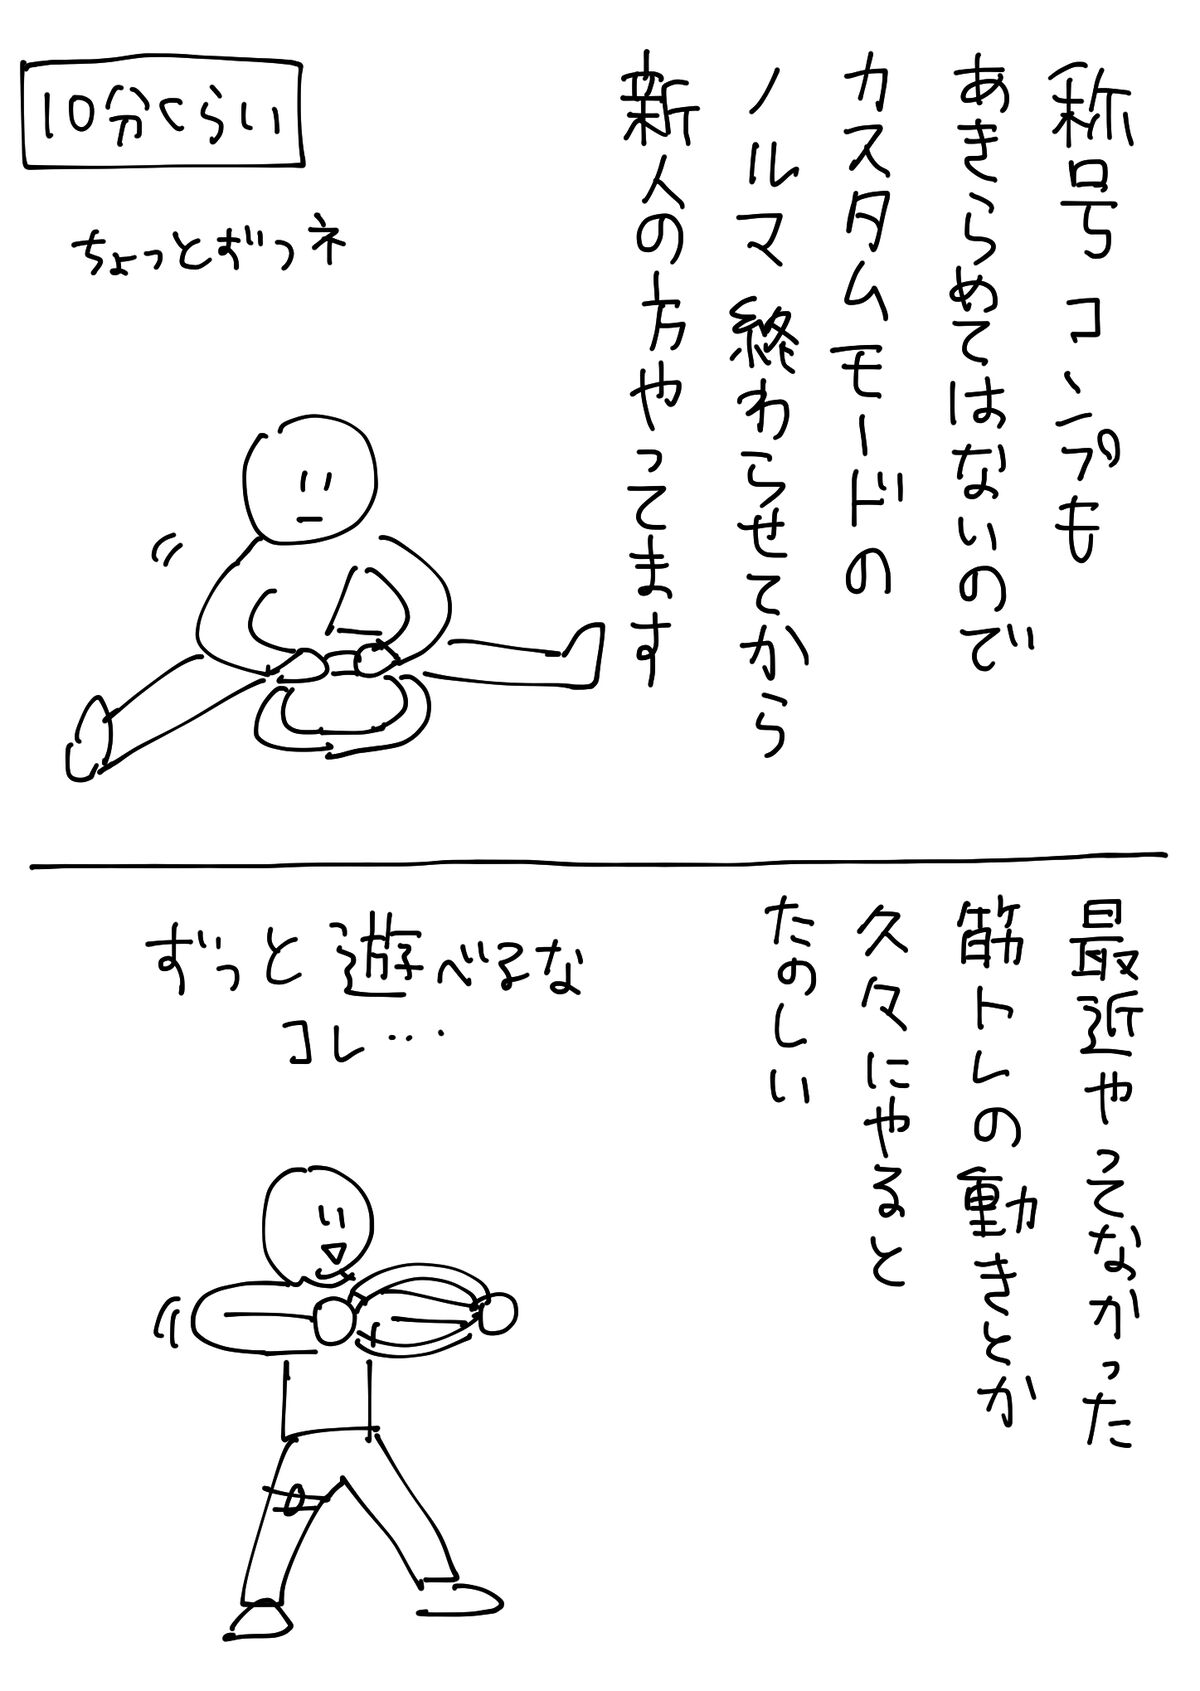 称号コンプも
あきらめてはないので
カスタムモードの
ノルマ終わらせてから
新人の方やってます
10分くらい
ちょっとずつネ
最近やってなかった
筋トレの動きとか
久々にやると
たのしい
ずっと遊べるな
コレ…